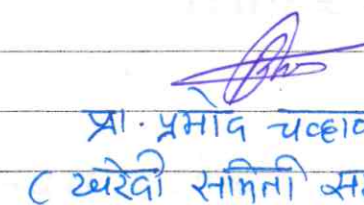 प्रा. प्रमोद चव्हाण
( खरेदी समिती